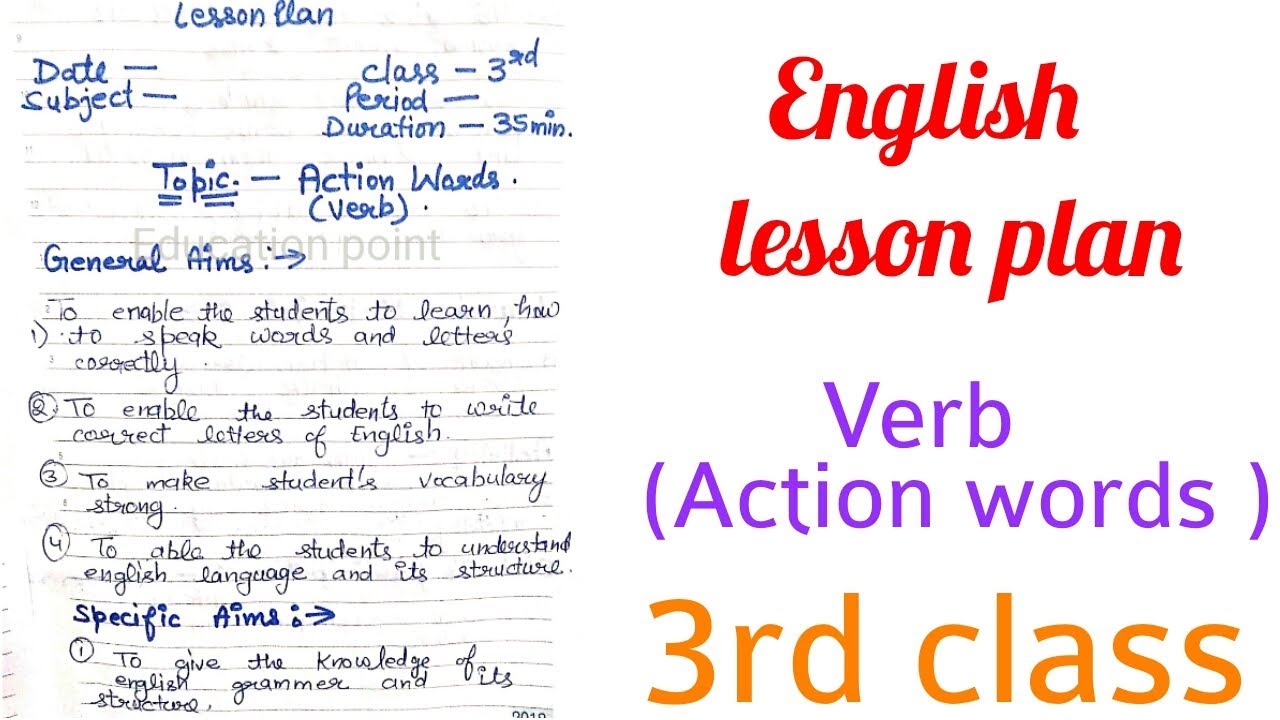 Lesson Plan
Date —
Class — 3rd
Subject —
Period —
Duration — 35min.
Topic. — Action Words.
(Verb).
Education point
General Aims :→
To enable the students to learn, how
1) to speak words and letters
correctly.
2. To enable the students to write
correct letters of English.
3 To make student's vocabulary
strong.
4 To able the students to understand
english language and its structure.
Specific Aims :→
1 To give the knowledge of
english grammer and its
structure,
English
lesson plan
Verb
(Action words )
3rd class